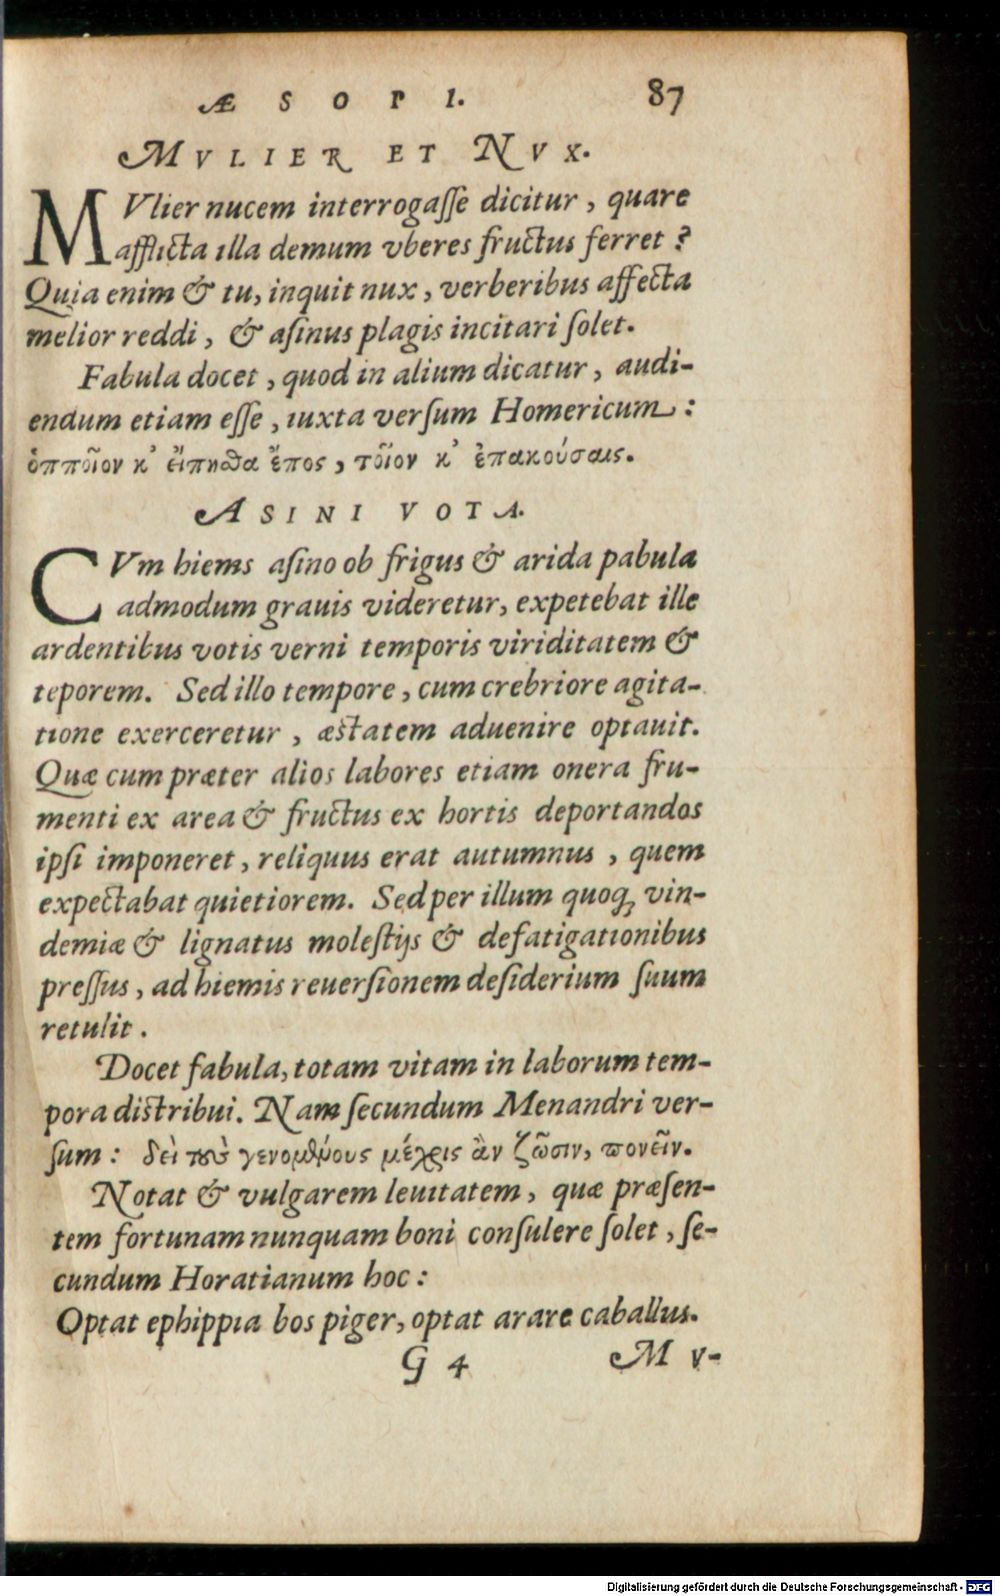 ÆSOPI. 87
MVLIER ET NVX.
MVlier nucem interrogaſſe dicitur, quare
afflicta illa demum vberes fructus ferret?
Quia enim & tu, inquit nux, verberibus affecta
melior reddi, & aſinus plagis incitari ſolet.
Fabula docet, quod in alium dicatur, audi-
endum etiam eſſe, iuxta verſum Homericum:
ὁπποῖον κ' εἴπῃσθα ἔπος, τοῖον κ' ἐπακούσαις.
ASINI VOTA.
CVm hiems aſino ob frigus & arida pabula
admodum grauis videretur, expetebat ille
ardentibus votis verni temporis viriditatem &
teporem. Sed illo tempore, cum crebriore agita-
tione exerceretur, æſtatem aduenire optauit.
Quæ cum præter alios labores etiam onera fru-
menti ex area & fructus ex hortis deportandos
ipſi imponeret, reliquus erat autumnus, quem
expectabat quietiorem. Sed per illum quoq; vin-
demiæ & lignatus moleſtijs & defatigationibus
preſſus, ad hiemis reuerſionem deſiderium ſuum
retulit.
Docet fabula, totam vitam in laborum tem-
pora diſtribui. Nam ſecundum Menandri ver-
ſum: δεὶ τοὺς γενομένους μέχρις ἂν ζῶσιν, πονεῖν.
Notat & vulgarem leuitatem, quæ præſen-
tem fortunam nunquam boni conſulere ſolet, ſe-
cundum Horatianum hoc:
Optat ephippia bos piger, optat arare caballus.
G 4 MV-
Digitalisierung gefördert durch die Deutsche Forschungsgemeinschaft - DFG